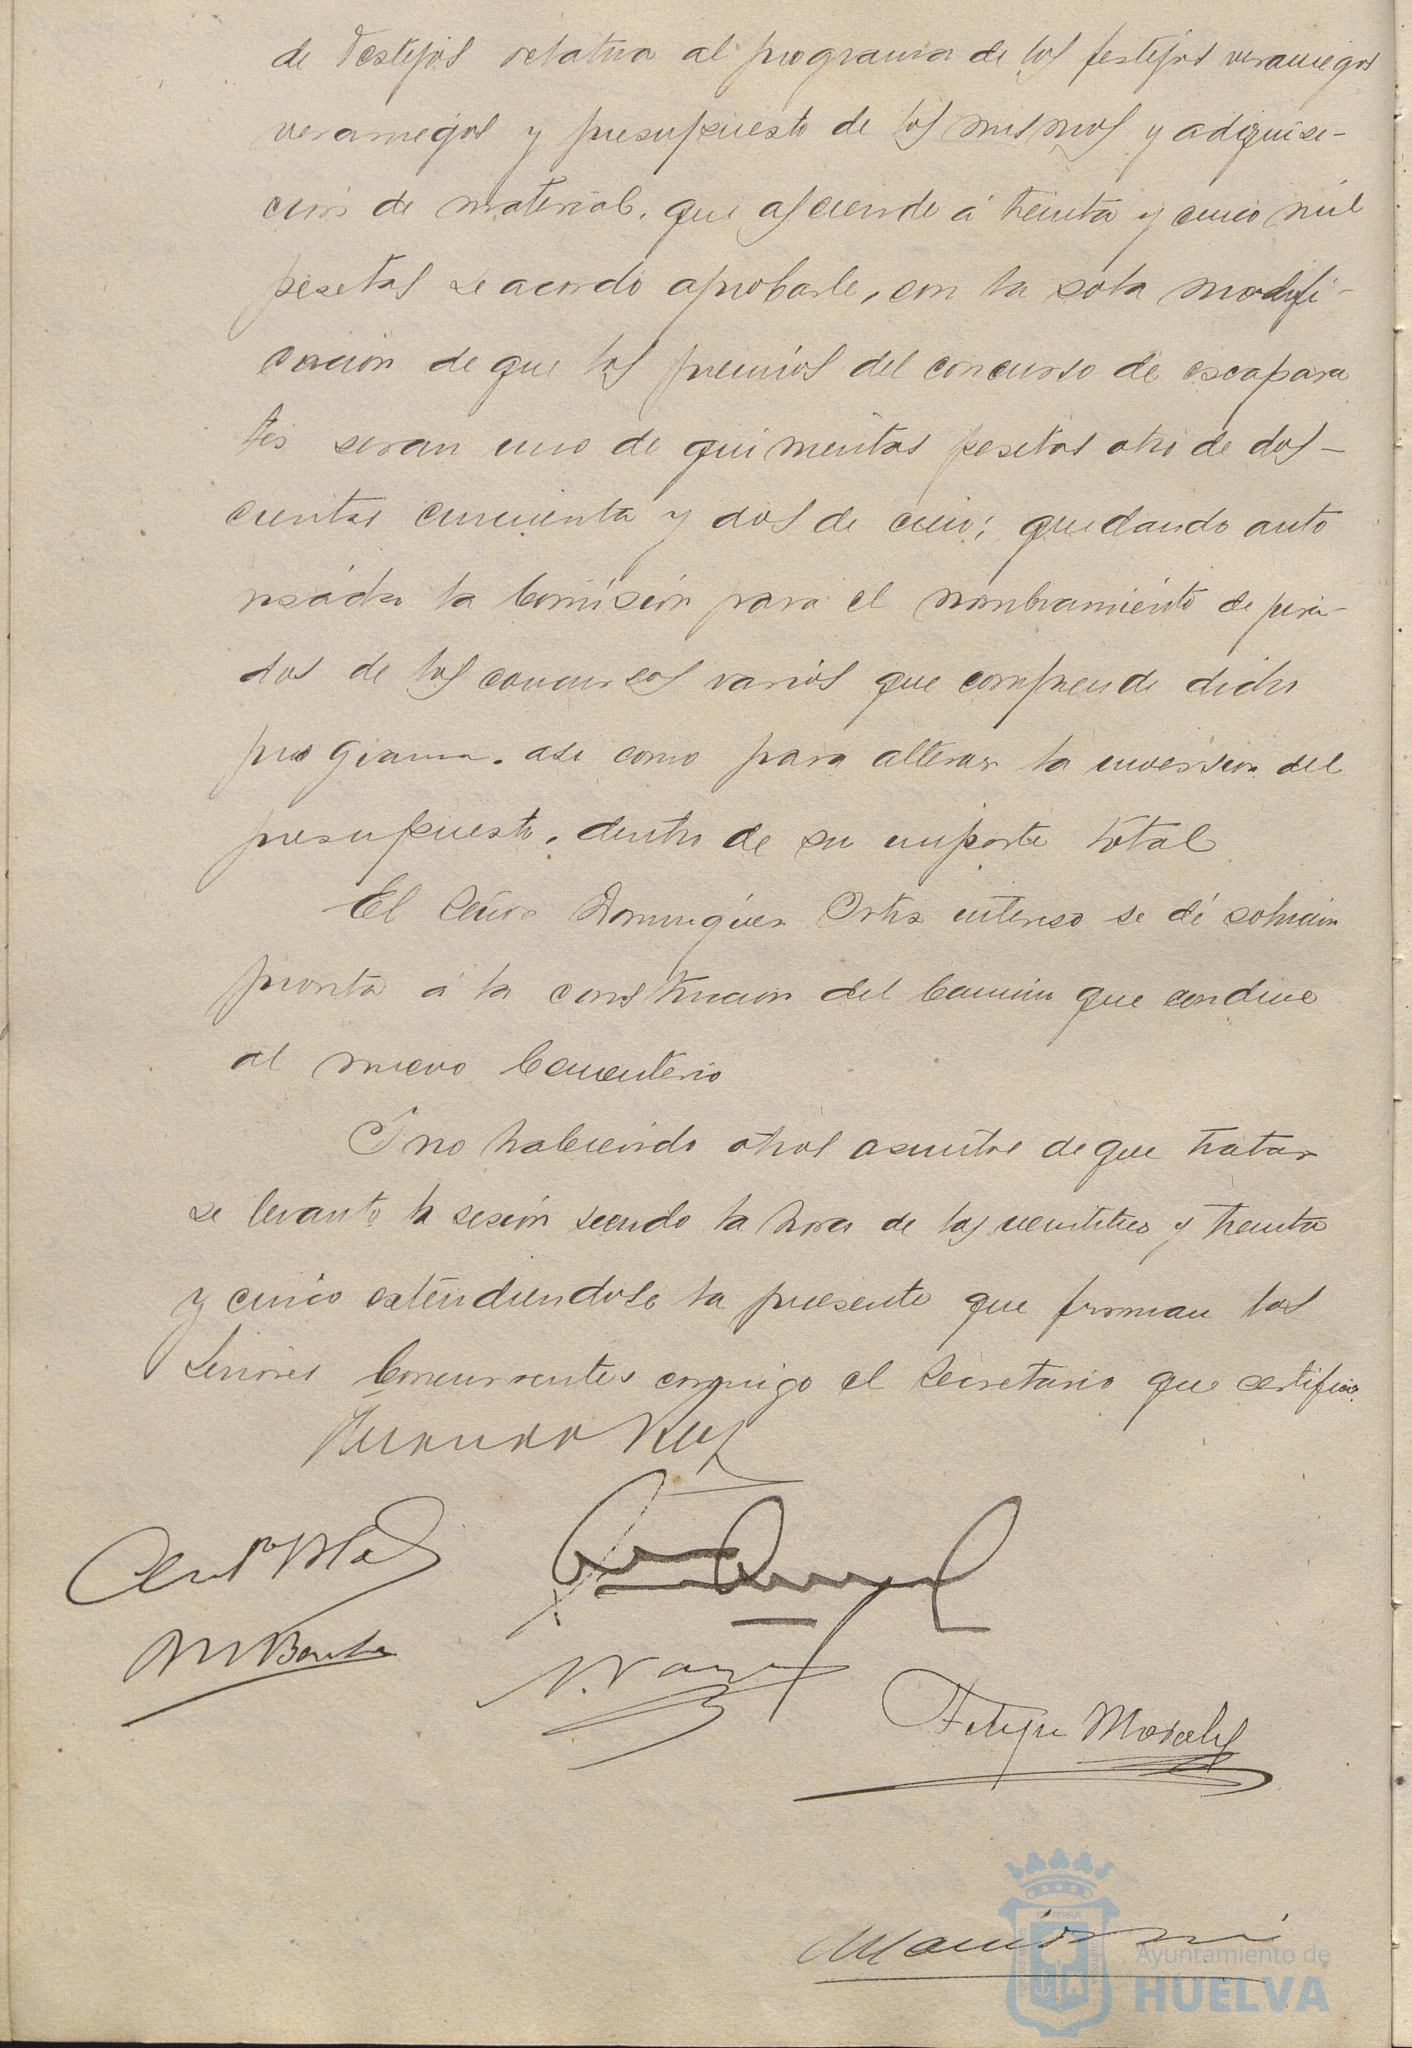 de Festejos relativa al programa de los festejos veraniegos
veraniegos y presupuesto de los mismos y adquisi-
ción de material, que asciende á treinta y cinco mil
pesetas se acordo aprobarle, con la sola modifi-
cación de que los premios del concurso de escapara
tes seran uno de quinientas pesetas otro de dos-
cientas cincuenta y dos de cien; quedando auto
risada la Comisión para el nombramiento de jura-
dos de los concursos varios que comprende dicho
programa. asi como para alterar la inversion del
presupuesto, dentro de su importe total
El Señor Dominguez Ortiz intereso se dé solucion
pronta á la construcion del Camino que conduce
al nuevo Cementerio
Y no habiendo otros asuntos de que tratar
se levanto la sesión siendo la hora de las veintitres y treinta
y cinco extendiendose la presente que firman los
Señores Concurrentes conmigo el Secretario que certifico.
Felipe Morales
Ayuntamiento de
HUELVA